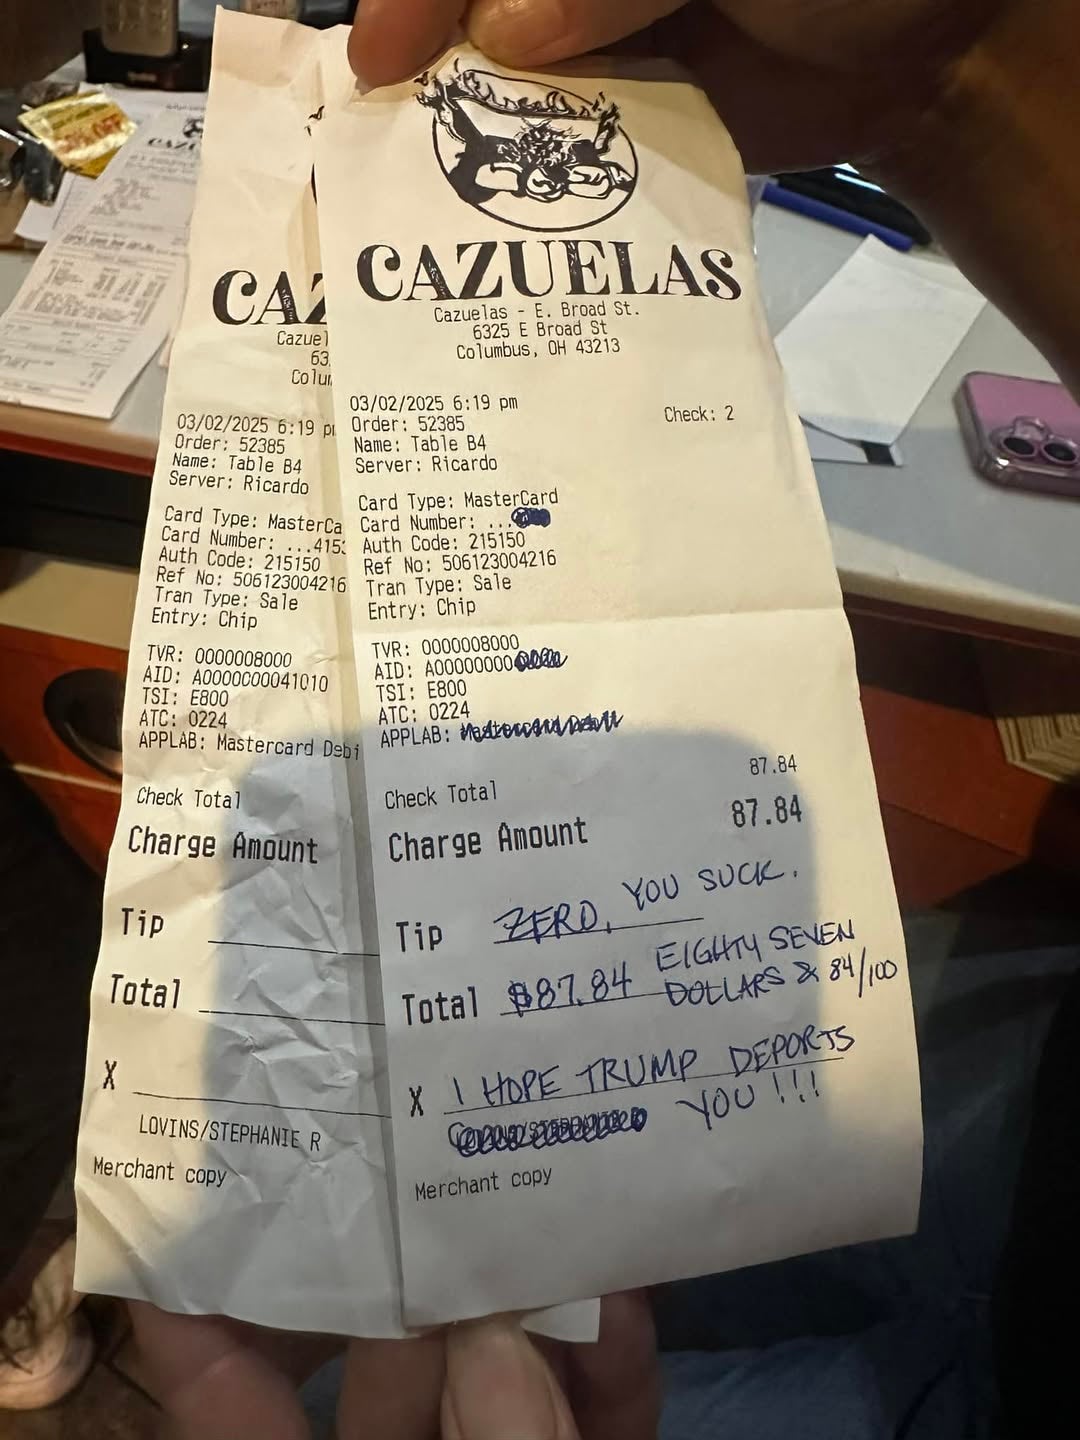 CAZUELAS
Cazuelas - E. Broad St.
6325 E Broad St
Columbus, OH 43213
03/02/2025 6:19 pm
Order: 52385 Check: 2
Name: Table B4
Server: Ricardo
Card Type: MasterCard
Card Number: ...
Auth Code: 215150
Ref No: 506123004216
Tran Type: Sale
Entry: Chip
TVR: 0000008000
AID: A00000000
TSI: E800
ATC: 0224
APPLAB:
Check Total 87.84
Charge Amount 87.84
Tip ZERO. YOU SUCK.
Total $87.84 EIGHTY SEVEN
DOLLARS & 84/100
X I HOPE TRUMP DEPORTS
YOU!!!
Merchant copy
CAZ
Cazuel
63
Colu
03/02/2025 6:19 p
Order: 52385
Name: Table B4
Server: Ricardo
Card Type: MasterCa
Card Number: ...415
Auth Code: 215150
Ref No: 506123004216
Tran Type: Sale
Entry: Chip
TVR: 0000008000
AID: A0000000041010
TSI: E800
ATC: 0224
APPLAB: Mastercard Debi
Check Total
Charge Amount
Tip
Total
X
LOVINS/STEPHANIE R
Merchant copy